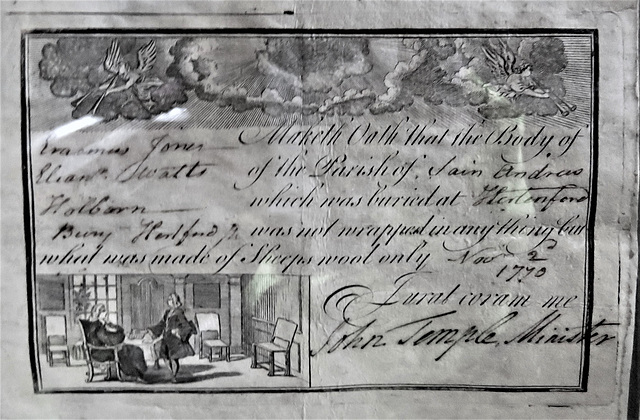 Erasmus Jones Maketh Oath that the Body of
Watts of the Parish of Sain Andreas
Holborn which was buried at
Bury Hertford was not wrapped in any thing but
what was made of Sheeps wool only Nov 2d
1770
Jurat coram me
John Temple, Minister